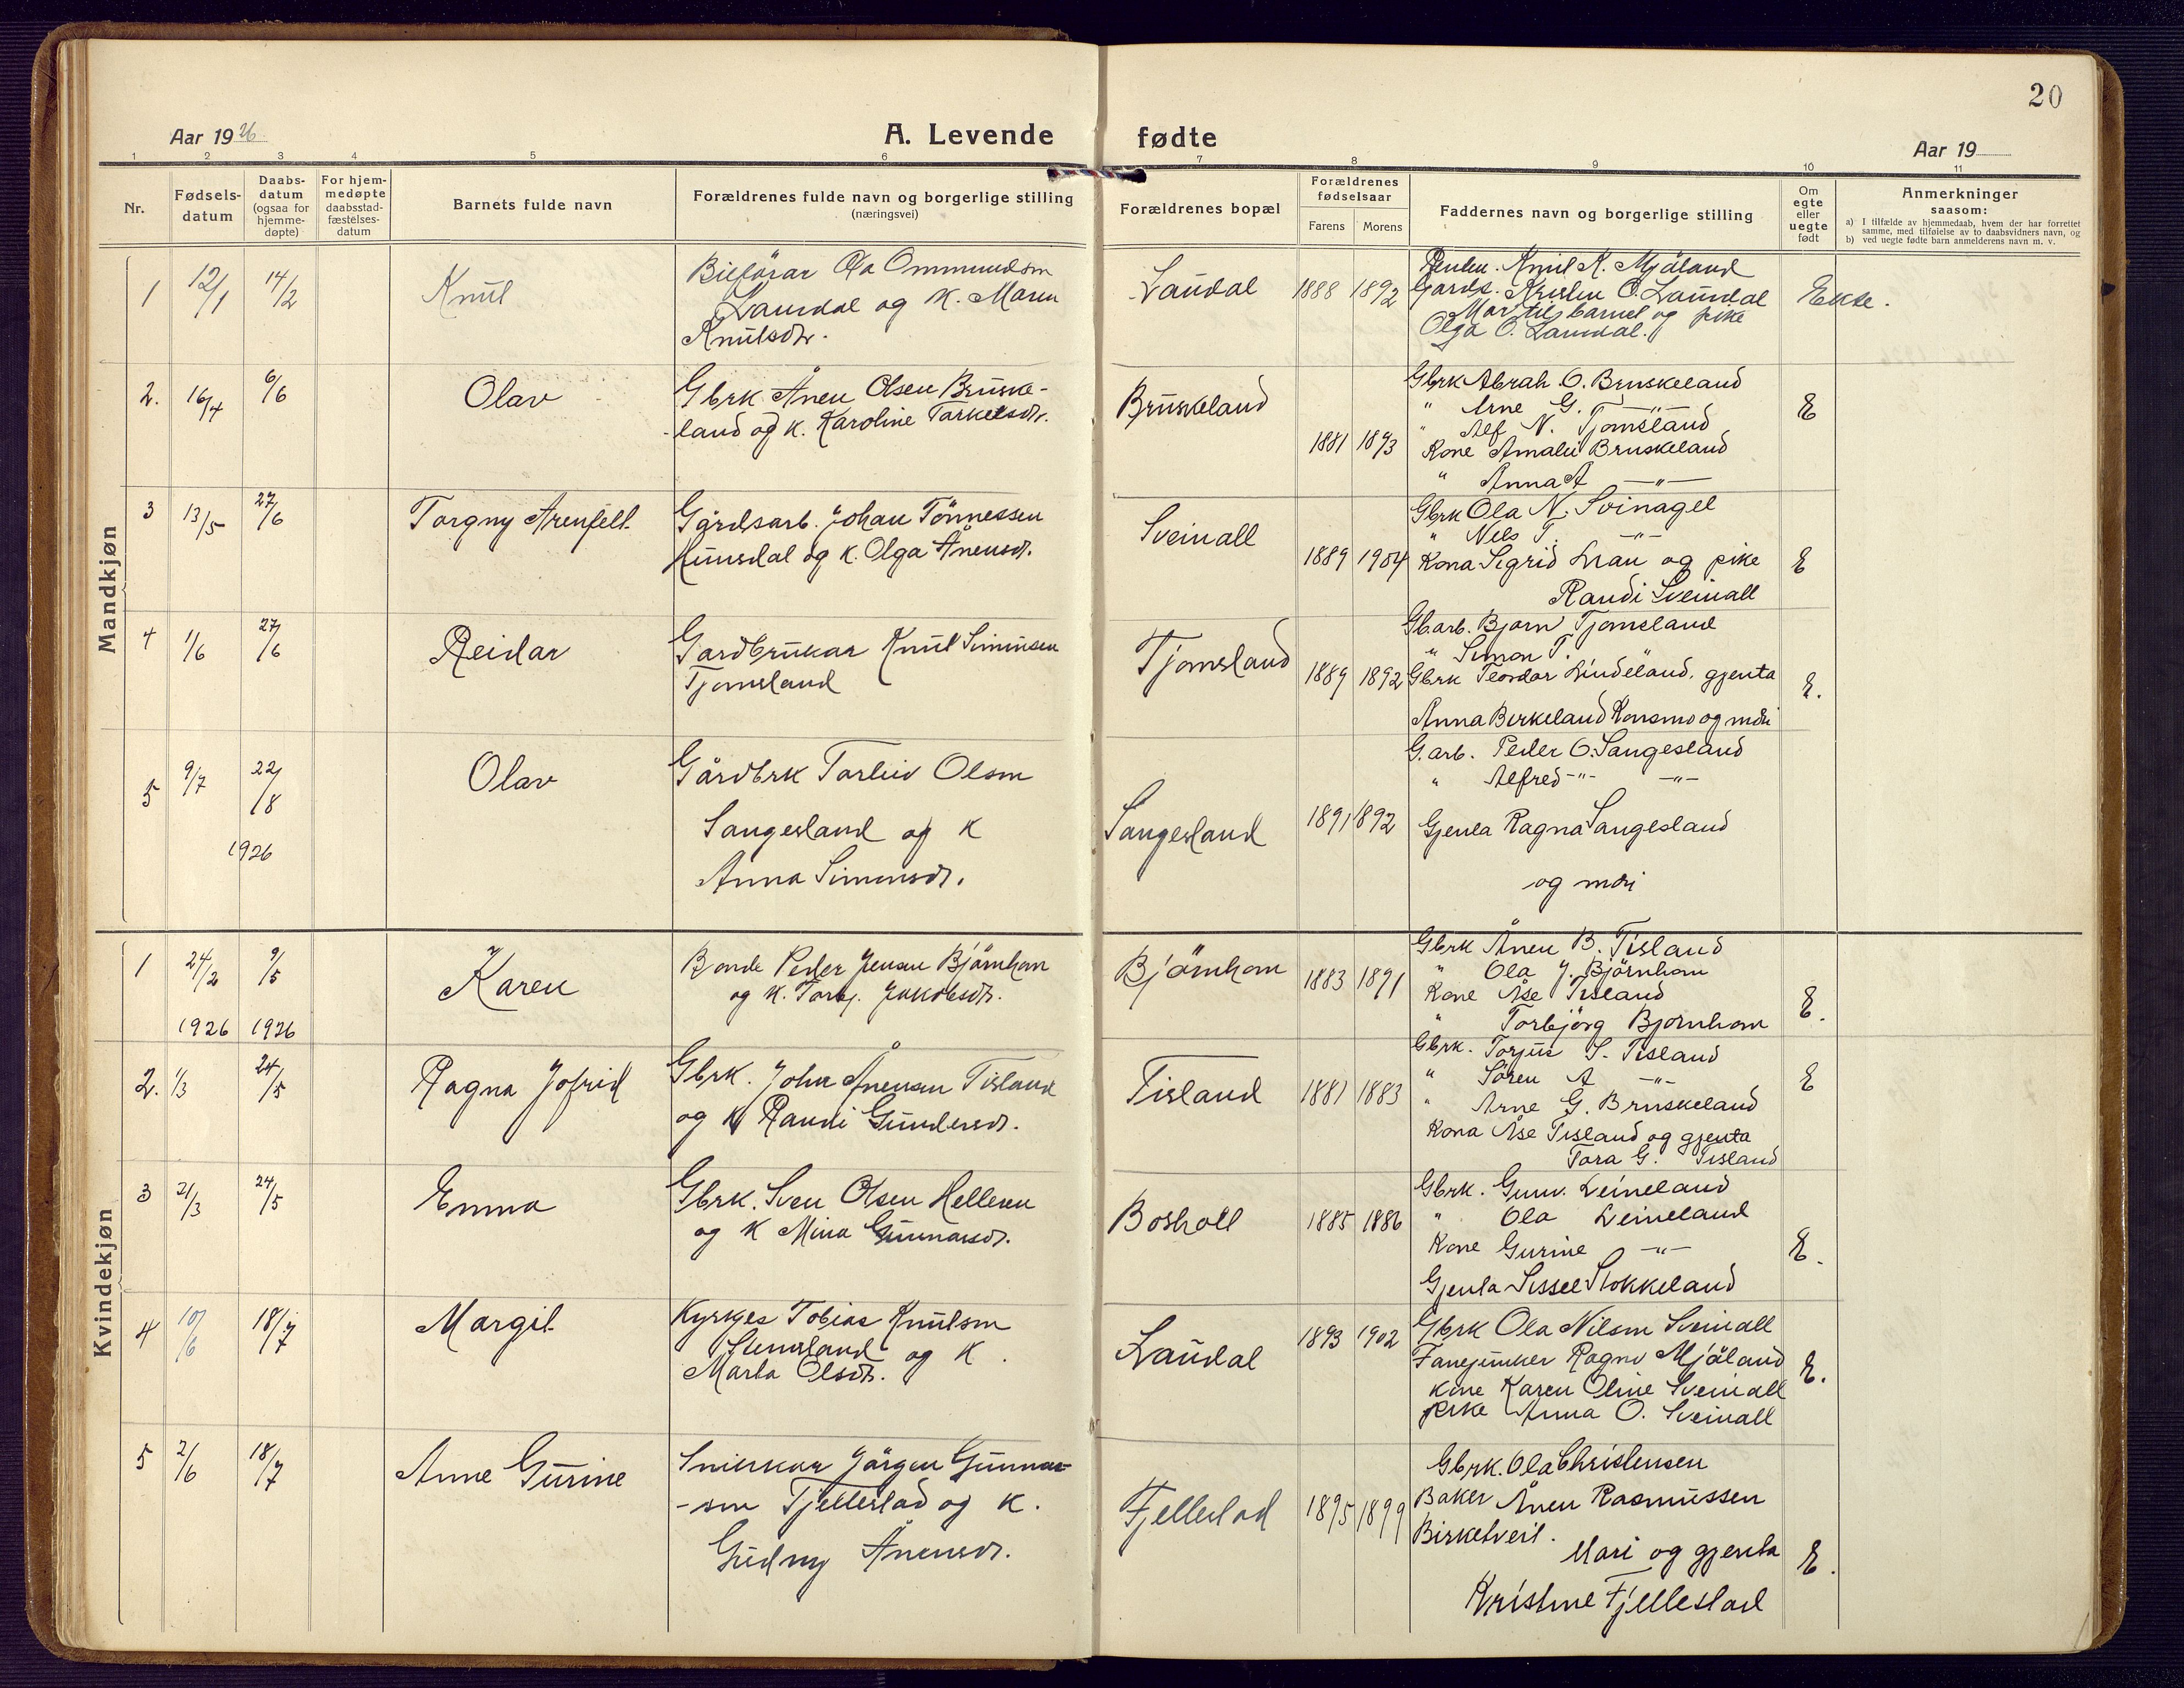 20
Aar 1926
A. Levende fødte
Aar 19
1 2 3 4 5 6 7 8 9 10 11
Nr.
Fødsels-
datum
Daabs-
datum
(ogsaa for
hjemme-
døpte)
For hjem-
medøpte
daabsstad-
fæstelses-
datum
Barnets fulde navn
Forældrenes fulde navn og borgerlige stilling
(næringsvei)
Forældrenes bopæl
Forældrenes
fødselsaar
Farens Morens
Faddernes navn og borgerlige stilling
Om
egte
eller
uegte
født
Anmerkninger
saasom:
a) I tilfælde av hjemmedaab, hvem der har forrettet
samme, med tilføielse av to daabsvidners navn, og
b) ved uegte fødte barn anmelderens navn m. v.
Mandkjøn
1 12/1 14/2 Knut
Bilförar Ola Ommundsen
Laudal og K. Maren
Knutsdtr.
Laudal 1888 1892
Knut K. Mjåland
Gards. Kristen O. Laudal
Mor til barnet og pike
Olga O. Laudal.
Ekte.
2. 16/4 6/6 Olav
Gbrk. Ånen Olsen Bruske-
-land og K. Karoline Tarkelsdr.
Bruskeland 1881 1893
Gbrk Abrah. O. Bruskeland
" Arne G. -"-
" Alf N. Tjomsland
Kone Amalie Bruskeland
" Anna A -"-
E
3 13/5 27/6 Torgny Arenfelt
Gårdsarb. Johan Tönnessen
Hunsdal og K. Olga Ånensdr.
Sveinall 1889 1904
Gbrk Ola N. Svinagel
" Nels T. -"-
Kona Sigrid Lian og pike
Randi Sveinall
E
4 1/6 27/6 Reidar
Gardbrukar Knut Simonsen
Tjomsland
Tjomsland 1889 1892
Gb.arb. Bjorn Tjomsland
" Simon T.
Gbrk Teodor Lindeland, gjenta
Anna Birkeland Konsmo og mori
E.
5 9/7 22/8 Olav
1926
Gårdbrk Tarleiv Olsen
Sangesland og K
Anna Simonsdr.
Sangesland 1891 1892
G.arb. Peder O. Sangesland
" Alfred -"- -"-
Gjenta Ragna Sangesland
og mori
Kvindekjøn
1 24/2 9/5 Karen
1926 1926
Bonde Peder Jensen Björnhom
og K. Torbj. Jakobsdr.
Björnhom 1883 1891
Gbrk Ånen B. Tisland
" Ola J. Björnhom
Kone Åse Tisland
" Torbjörg Bjornhom
E.
2. 1/3 24/5 Ragna Jofrid
Gbrk. John Ånensen Tisland
og K Randi Gundersdr.
Tisland 1881 1883
Gbrk. Torjus S. Tisland
" Sören A -"-
" Arne G. Bruskeland
Kona Åse Tisland og gjenta
Tora G. Tisland
E
3 21/3 24/5 Emma
Gbrk. Sven Olsen Helleren
og K Mina Gunnarsdr.
Bosholt 1885 1886
Gbrk. Gunv. Leineland
" Ola Leineland
Kone Gurine -"-
Gjenta Sissel Stokkeland
E.
4 10/6 18/7 Margit
Kyrkjes Tobias Knutsen
Stensland og K.
Marta Olsdtr.
Laudal 1893 1902
Gbrk Ola Nilsen Sveinall
Fanejunker Ragnv Mjåland
kone Karen Oline Sveinall
pike Anna O. Sveinall
E.
5 2/6 18/7 Anne Gurine
Snikkar Jörgen Gunnar-
-sen Fjellestad og K.
Gudny Ånensdr.
Fjellestad 1895 1899
Gbrk. Ola Christensen
Baker Ånen Rasmussen
Birketveit.
Mari og gjenta
Kristine Fjellestad
E.